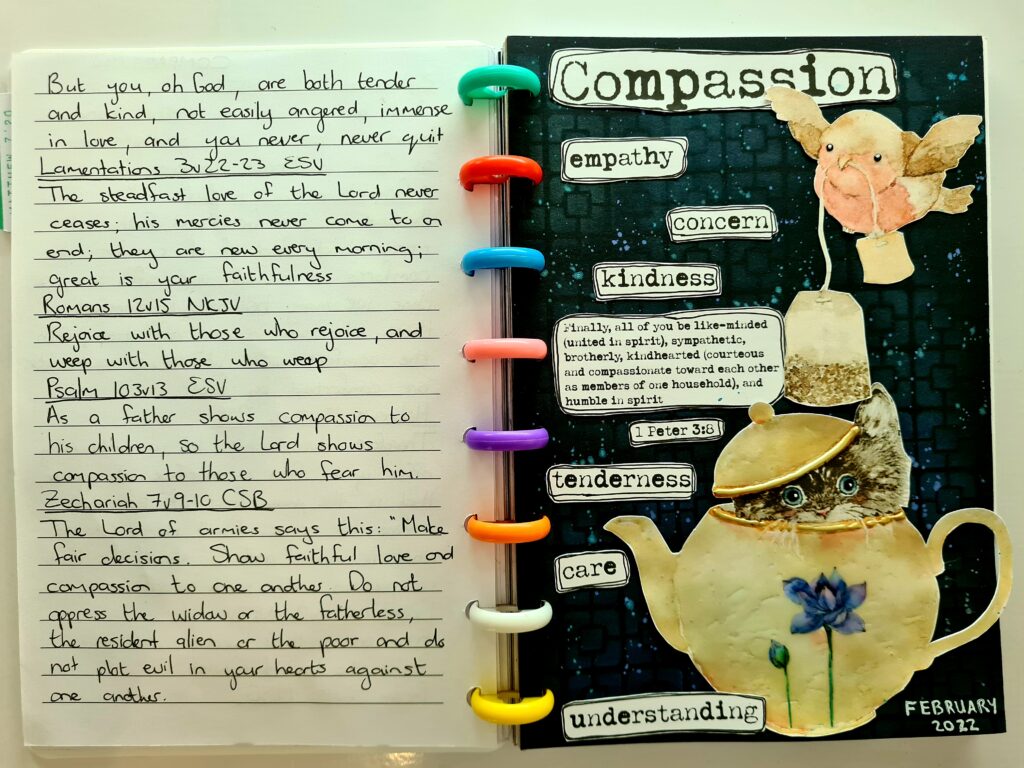 But you, oh God, are both tender
and kind, not easily angered, immense
in love, and you never, never quit
Lamentations 3v22-23 ESV
The steadfast love of the Lord never
ceases; his mercies never come to an
end; they are new every morning;
great is your faithfulness
Romans 12v15 NKJV
Rejoice with those who rejoice, and
weep with those who weep
Psalm 103v13 ESV
As a father shows compassion to
his children, so the Lord shows
compassion to those who fear him.
Zechariah 7v9-10 CSB
The Lord of armies says this: "Make
fair decisions. Show faithful love and
compassion to one another. Do not
oppress the widow or the fatherless,
the resident alien or the poor and do
not plot evil in your hearts against
one another.
Compassion
empathy
concern
kindness
Finally, all of you be like-minded
(united in spirit), sympathetic,
brotherly, kindhearted (courteous
and compassionate toward each other
as members of one household), and
humble in spirit
1 Peter 3:8
tenderness
care
understanding
FEBRUARY
2022